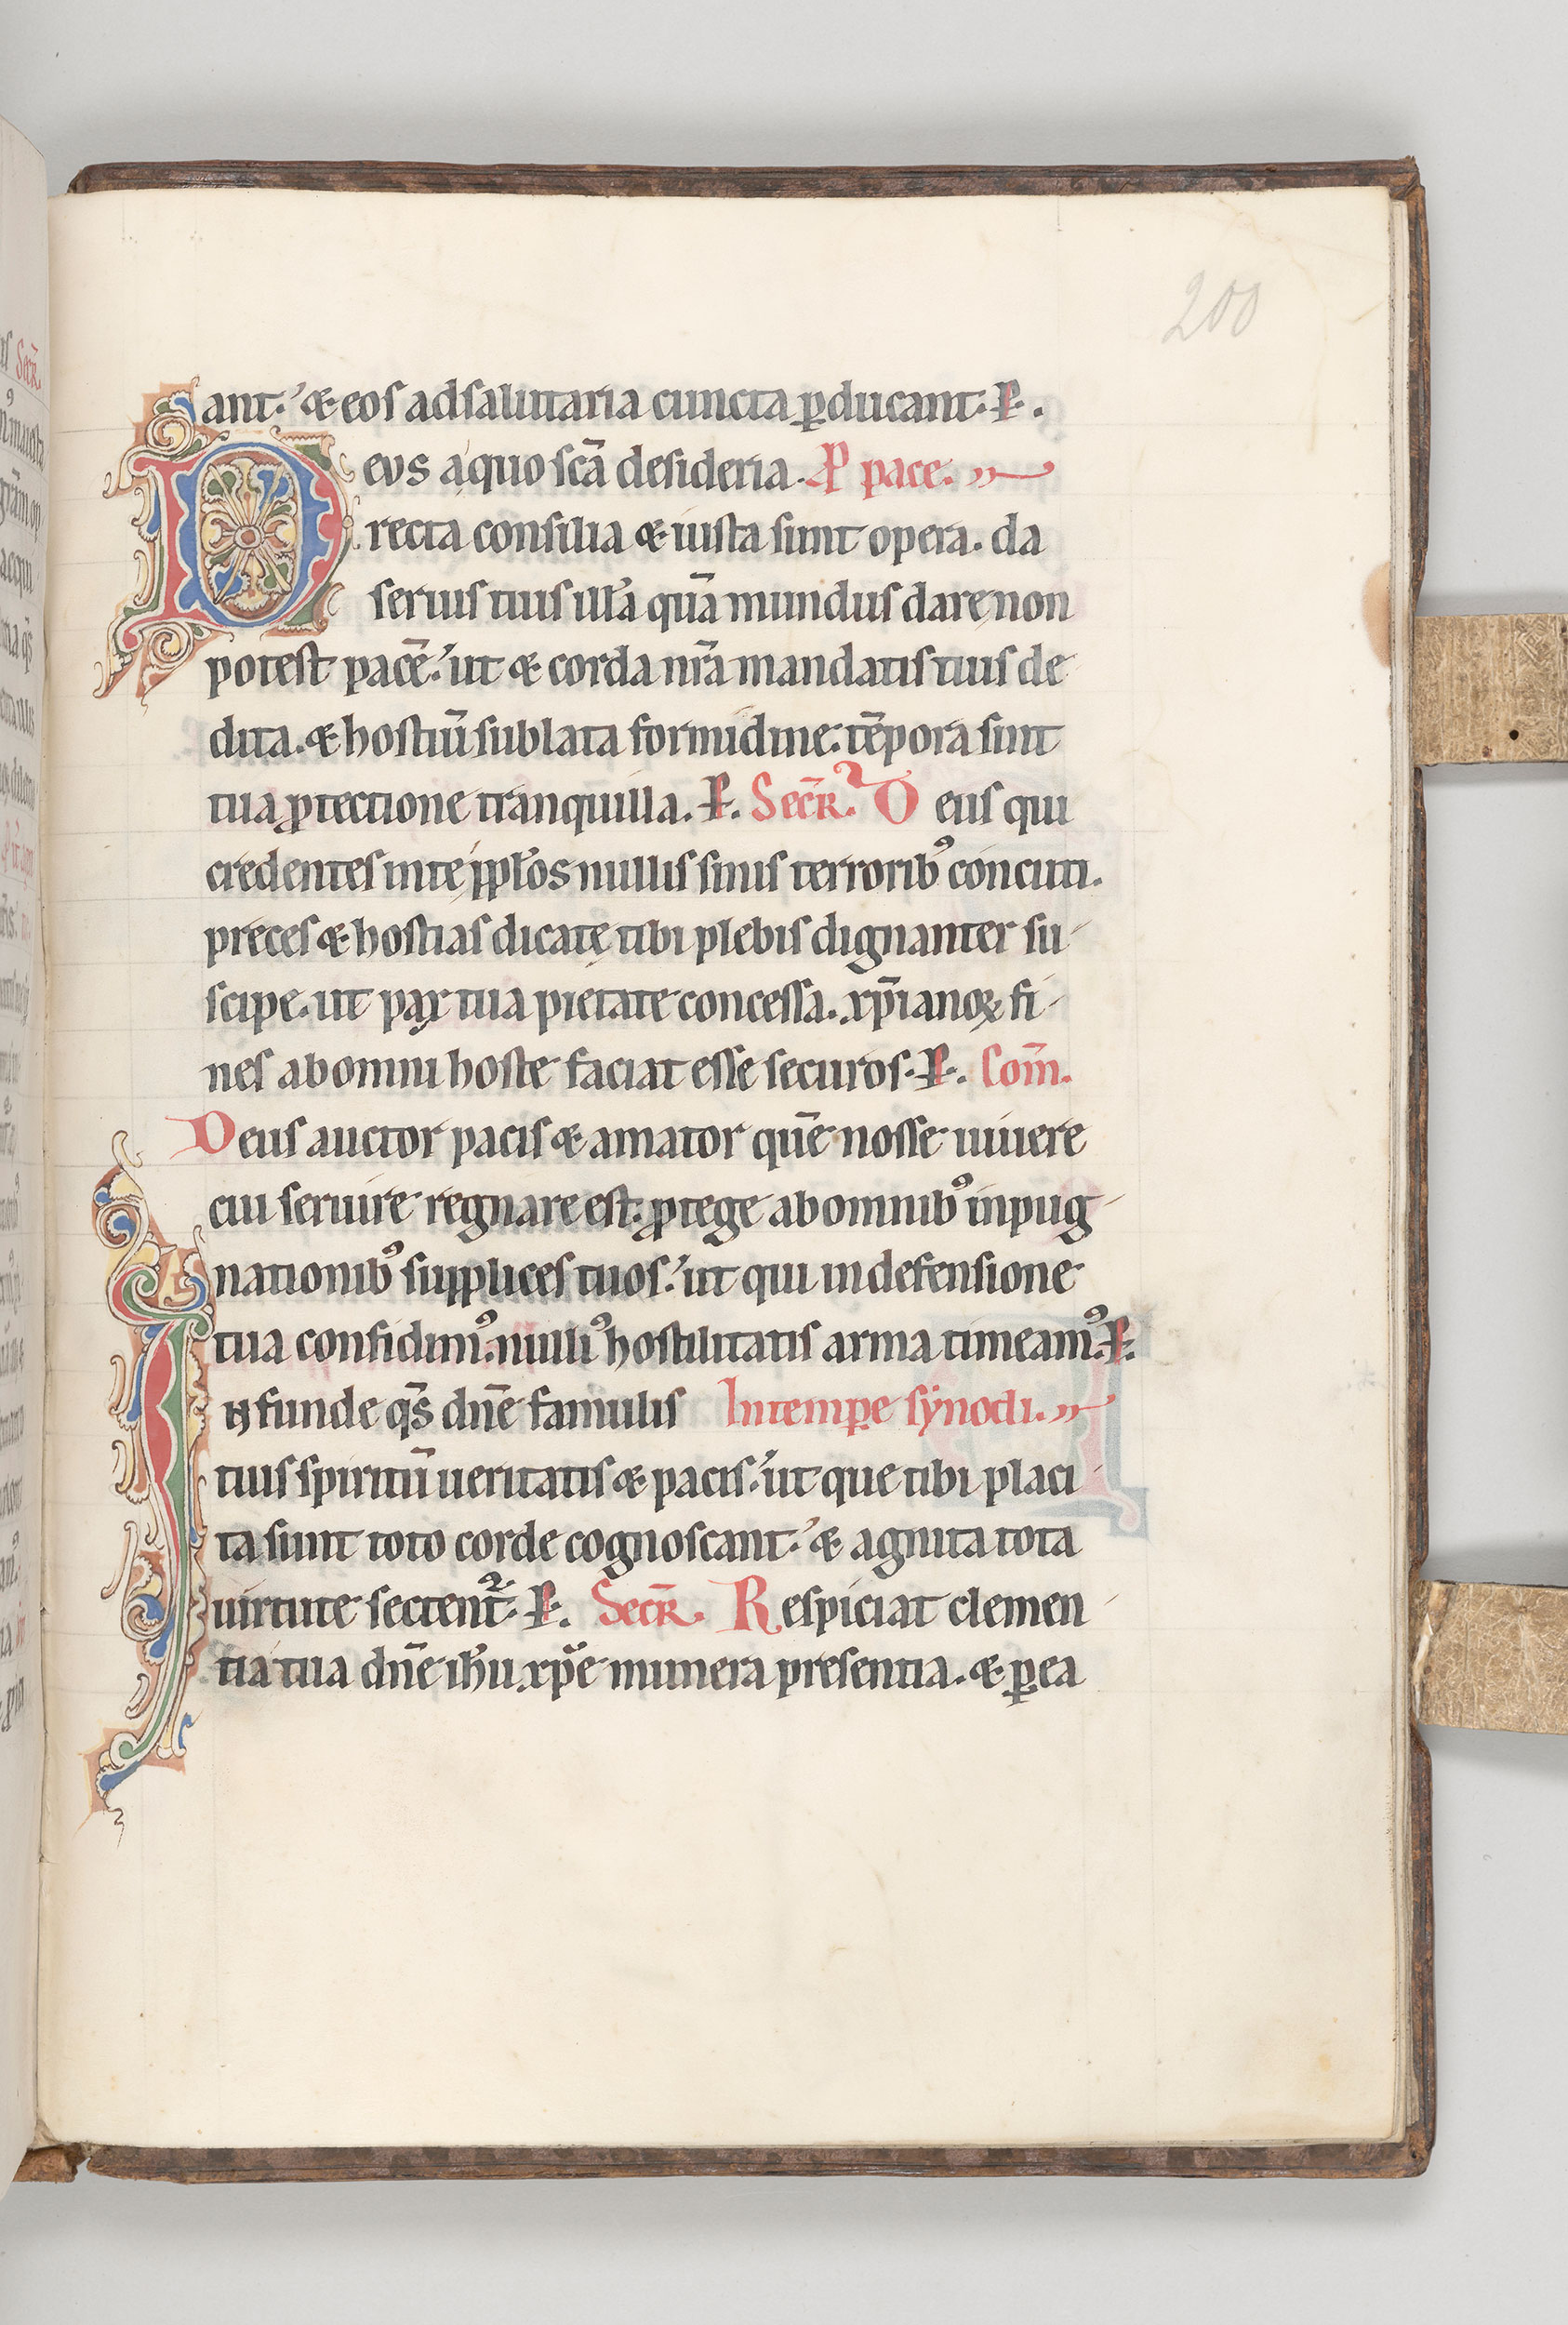 200
ant. & eos ad salutaria cuncta ꝑducant. P.
DEVS a quo sc̄a desideria. P pace.
recta consilia & iusta sunt opera. da
seruis tuis ill̄a quā mundus dare non
potest pacē. ut & corda nr̄a mandatis tuis de
dita. & hostiū sublata formidine. tēpora sint
tua ꝓtectione tranquilla. P. Secr̄. Deus qui
credentes in te ppl̄os nullis sinis terrorib⁹ concuti.
preces & hostias dicatę tibi plebis dignanter su
scipe. ut pax tua pietate concessa. xp̄ianoꝝ fi
nes ab omni hoste faciat esse securos. P. Com̄.
Deus auctor pacis & amator quē nosse uiuere
cui seruire regnare est. ꝓtege ab omnib⁹ inpug
nationib⁹ supplices tuos. ut qui in defensione
tua confidim⁹. nulli⁹ hostilitatis arma timeam⁹. P.
INfunde qs̄ dn̄e famulis In tempe synodi.
tuis spiritū ueritatis & pacis. ut que tibi placi
ta sunt toto corde cognoscant. & agnita tota
uirtute sectent̄. P. Secr̄. Respiciat clemen
tia tua dn̄e ih̄u xp̄e munera presentia. & ꝑ ea